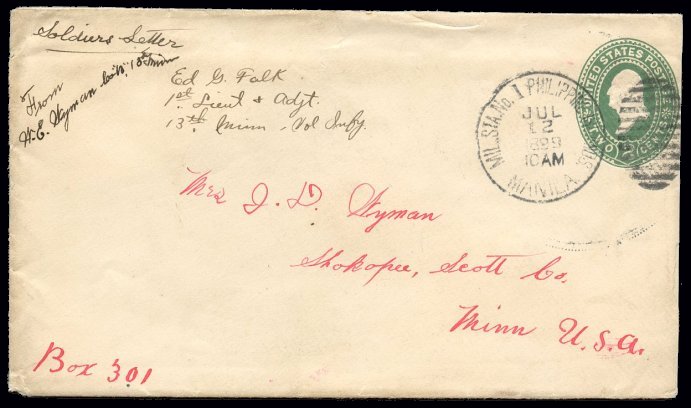 Soldiers Letter
From
W. E. Wyman Co "B", 13th Minn
Ed G. Falk
1st. Lieut & Adjt.
13th Minn. Vol Infy.
MIL. STA. No. 1 PHILIPPINE
JUL
12
1899
10AM
MANILA
UNITED STATES POSTAGE
TWO CENTS
Mrs J. D. Wyman
Shokopee, Scott Co.
Minn U.S.A.
Box 301